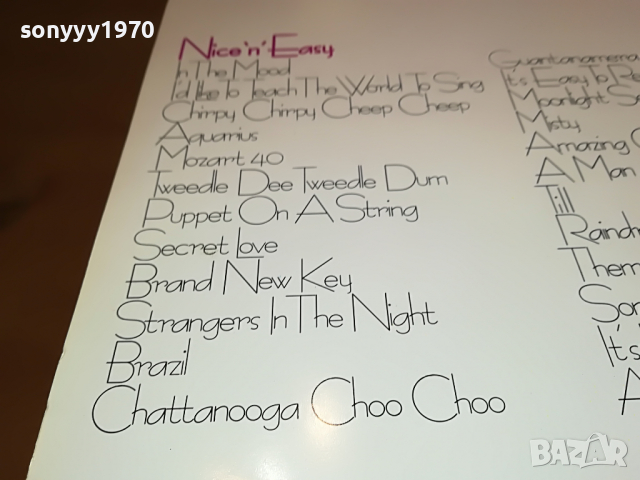 sonyyy1970
Nice 'n' Easy
In The Mood
I'd like To Teach The World To Sing
Chirpy Chirpy Cheep Cheep
Aquarius
Mozart 40
Tweedle Dee Tweedle Dum
Puppet On A String
Secret Love
Brand New Key
Strangers In The Night
Brazil
Chattanooga Choo Choo
Guantanamera
It's Easy To
Moonlight
Misty
Amazing
A Man
Till
Them
It's
A
BAZAR